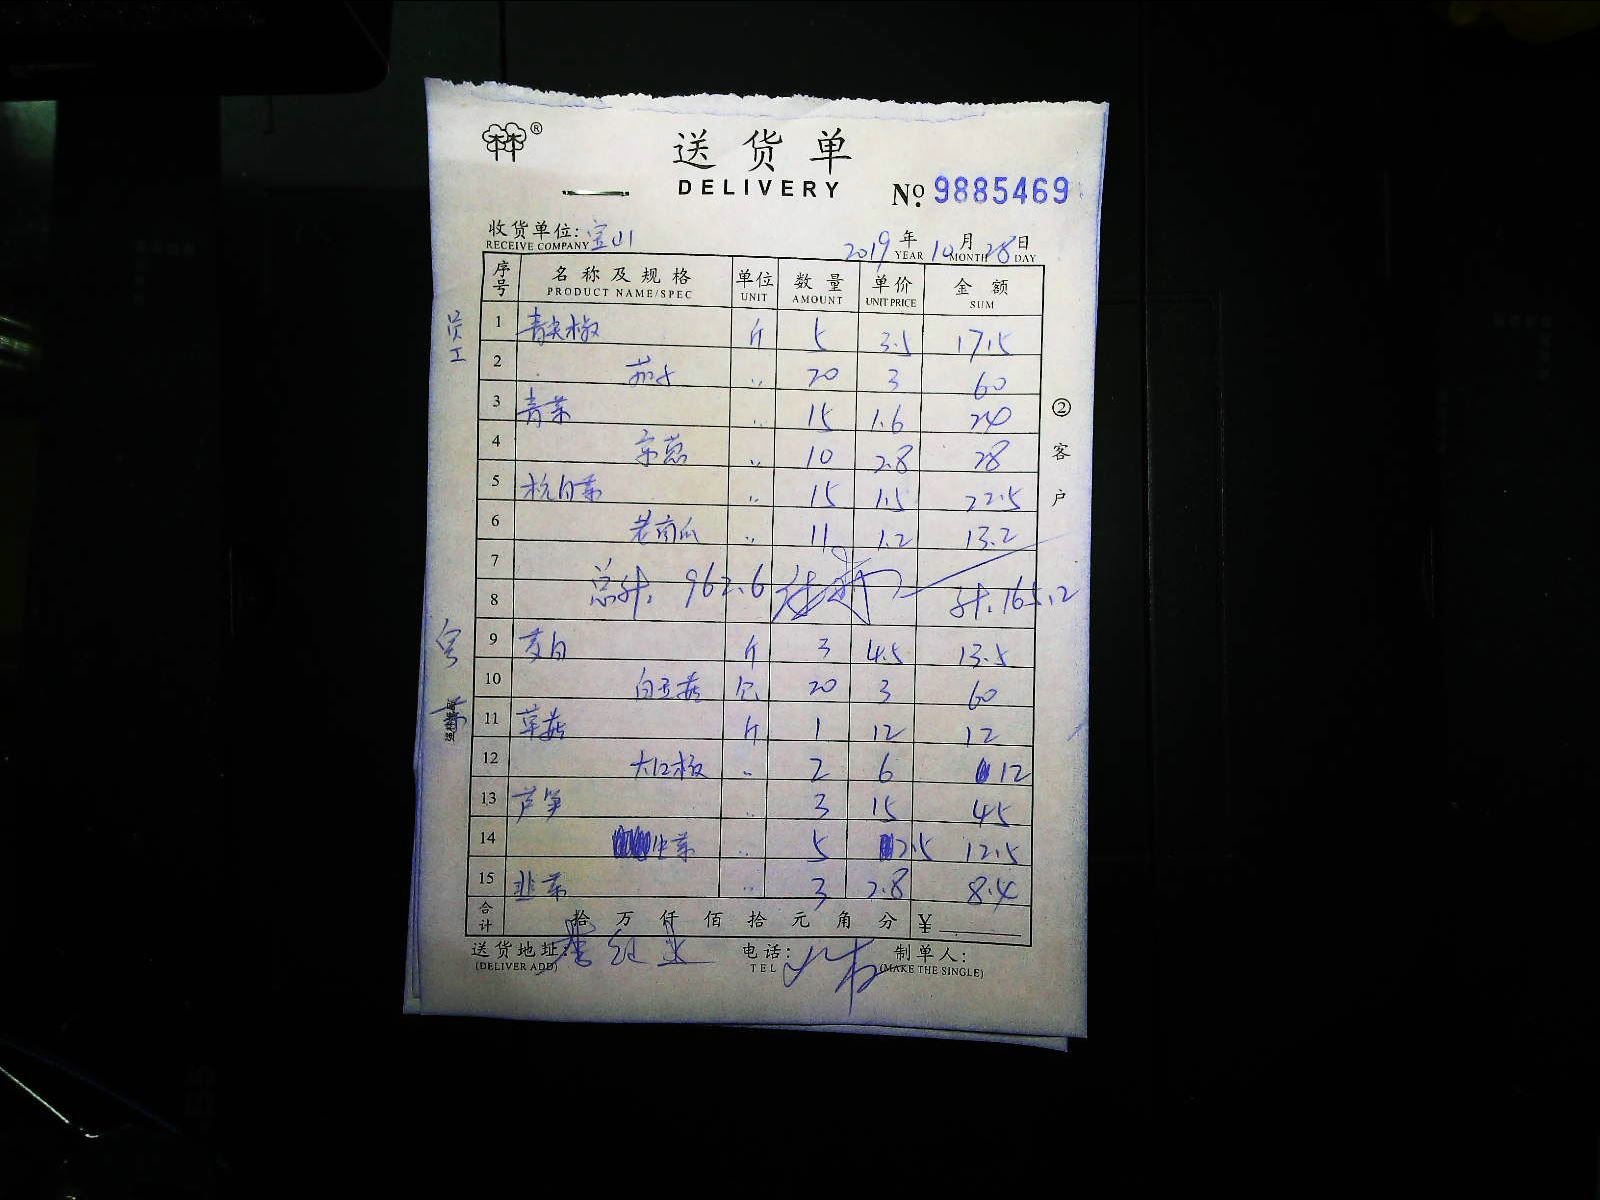 ®
送货单
DELIVERY
№ 9885469
收货单位: 宝山
RECEIVE COMPANY
2019年10月28日
YEAR MONTH DAY
序号 名称及规格 单位 数量 单价 金额
PRODUCT NAME/SPEC UNIT AMOUNT UNIT PRICE SUM
员工
1 青尖椒 斤 5 3.5 17.5
2 茄子 〃 20 3 60
3 青菜 〃 15 1.6 24
4 京葱 〃 10 2.8 28
5 杭白菜 〃 15 1.5 22.5
6 老南瓜 〃 11 1.2 13.2
7
8 总计. 962.6 计.165.2
9 茭白 斤 3 4.5 13.5
10 白玉菇 包 20 3 60
11 草菇 斤 1 12 12
12 大红椒 〃 2 6 12
13 芦笋 〃 3 15 45
14 生菜 〃 5 2.5 12.5
15 韭菜 〃 3 2.8 8.4
合计 拾万仟佰拾元角分 ¥
送货地址: 电话: 制单人:
(DELIVER ADD) TEL (MAKE THE SINGLE)
②客户